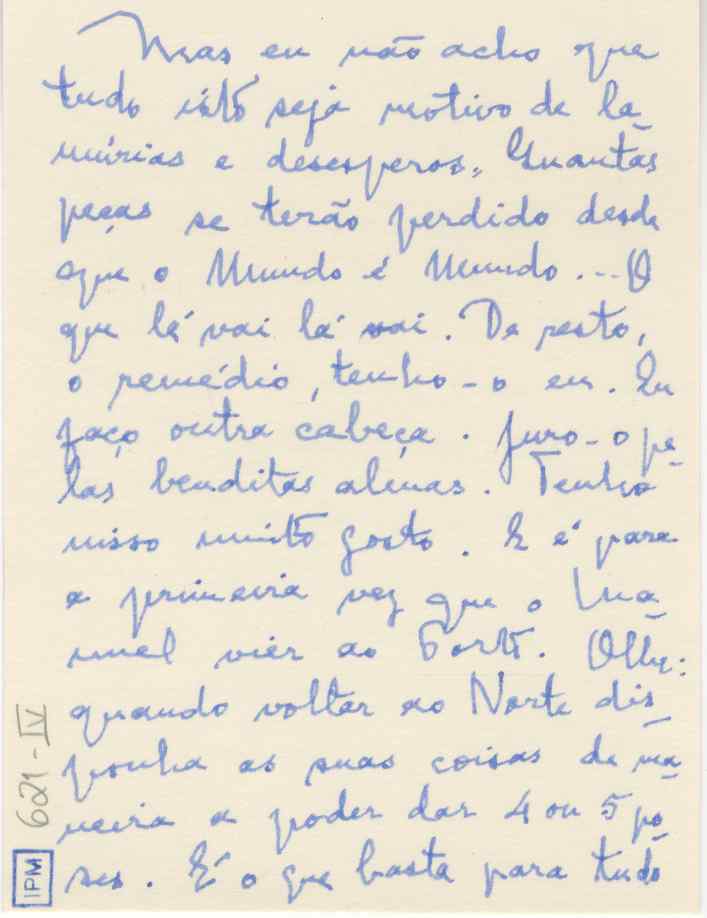 Mas eu não acho que
tudo isto seja motivo de la-
múrias e desesperos. Quantas
peças se terão perdido desde
que o Mundo é Mundo... O
que lá vai lá vai. De resto,
o remédio, tenho-o eu. Eu
faço outra cabeça. Juro-o pe-
las benditas almas. Tenho
nisso muito gosto. E é para
a primeira vez que o Ma-
nuel vier ao Porto. Olhe:
quando voltar ao Norte dis-
ponha as suas coisas de ma-
neira a poder dar 4 ou 5 po-
ses. É o que basta para tudo
621-IV
IPM